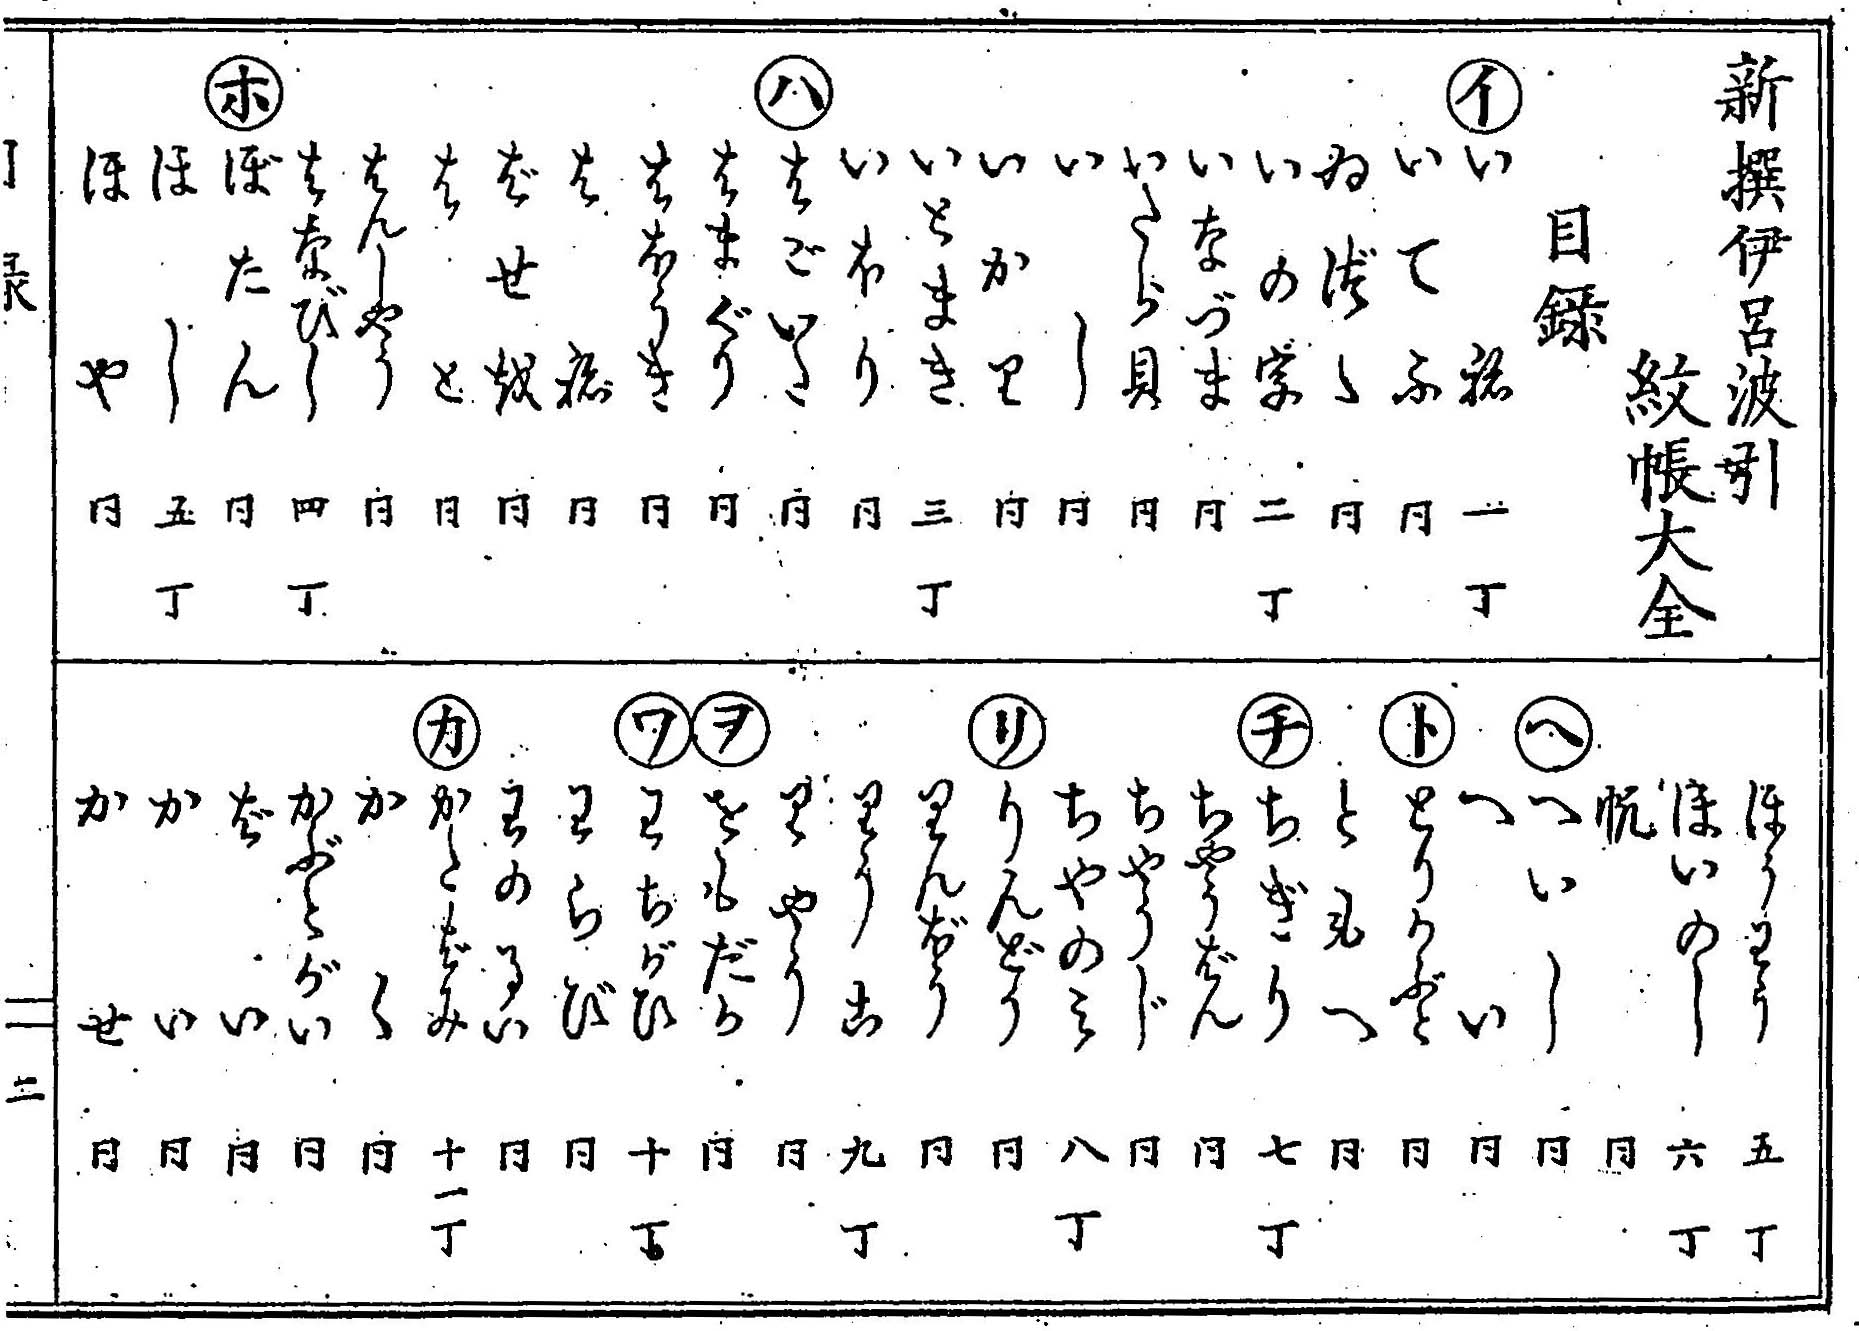 新撰伊呂波引
紋帳大全
目録
イ いね 一丁
いてふ 同
ゐづゝ 同
いの字 二丁
いなづま 同
いたら貝 同
いし 同
いかり 同
いとまき 三丁
いほり 同
ハ はごいた 同
はまぐり 同
はほうき 同
はね 同
ばせを 同
はと 同
はんしやう 同
はなびし 四丁
ホ ぼたん 同
ほし 五丁
ほや 同
ほうわう 五丁
ほいのし 六丁
帆 同
ヘ へいし 同
へい 同
ト とりかぶと 同
ともへ 同
チ ちぎり 七丁
ちやうばん 同
ちやうじ 同
ちやのミ 八丁
リ りんどう 同
りんぼう 同
りうこ 九丁
りやう 同
ヲ をもだか 同
ワ わちがひ 十丁
わらび 同
わのるい 同
カ かたばみ 十一丁
か 同
かぶとがい 同
ばい 同
かい 同
かせ 同
目録 二